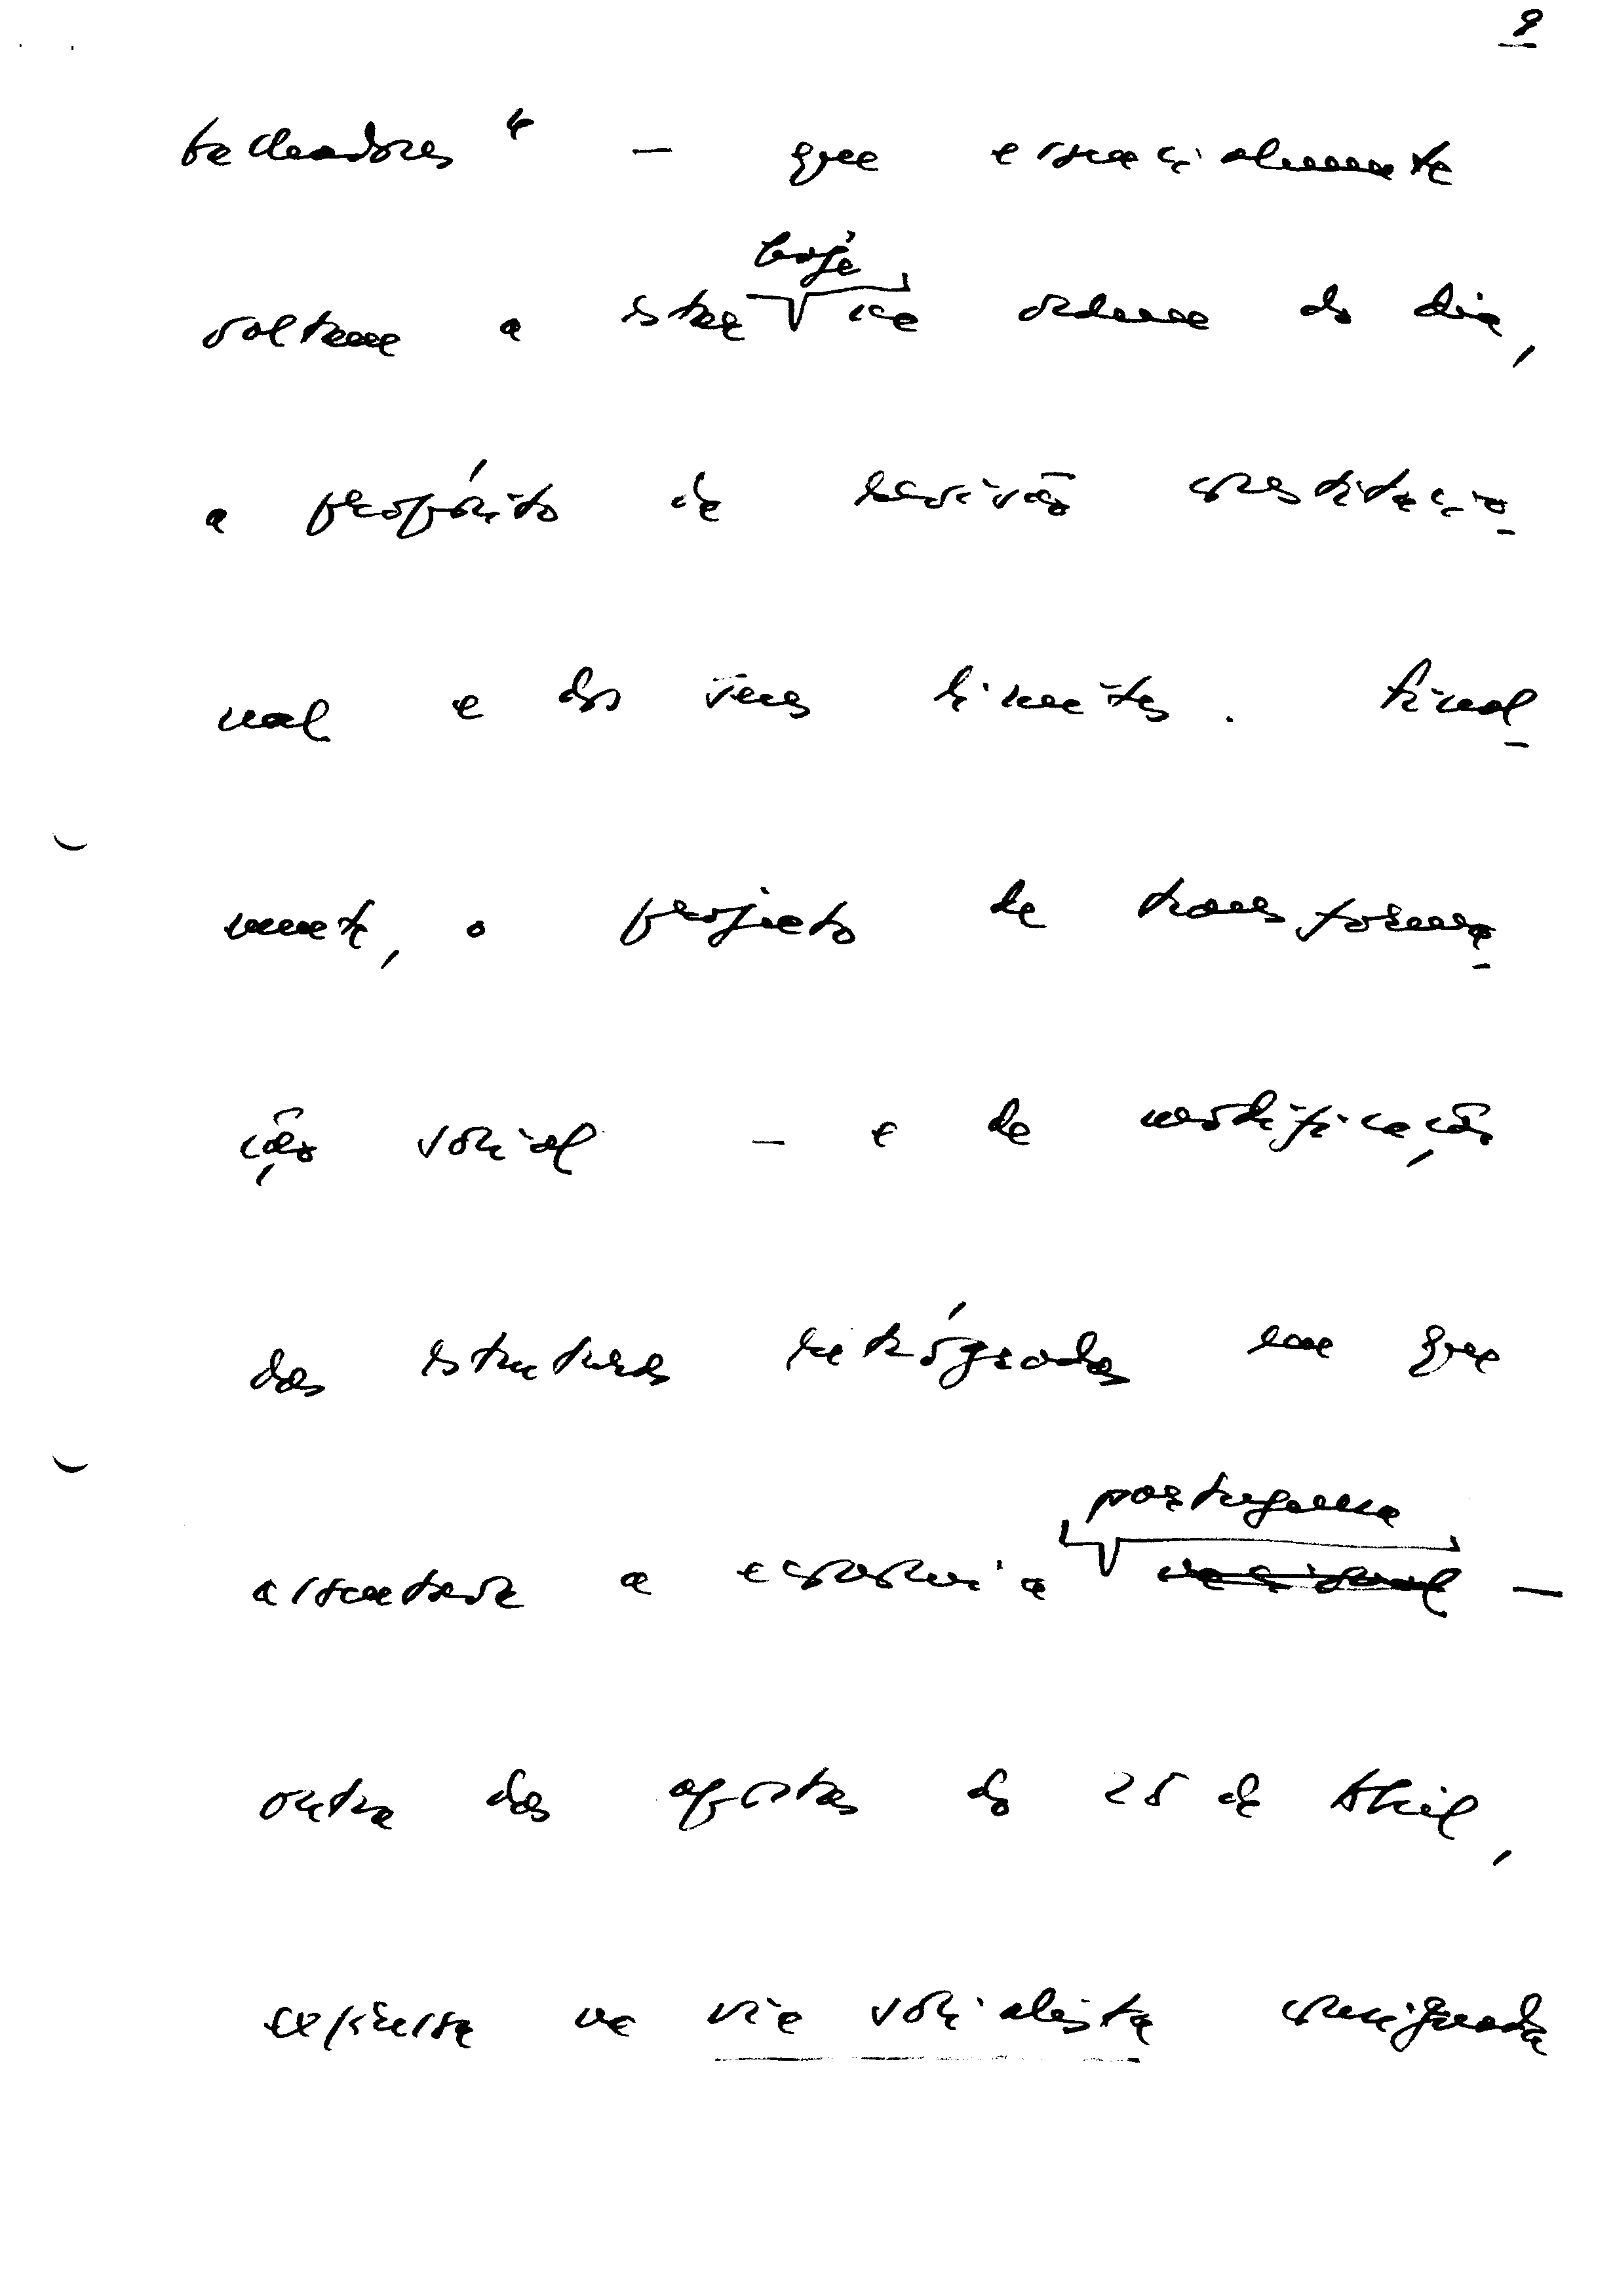 9
balhadores" — que essencialmente
voltam a estar hoje na ordem do dia,
a propósito de revisão constitucio-
nal e dos seus limites. Final-
mente, o projecto de transforma-
ção social — e de modificação
das estruturas retrógradas em que
assentava a economia portuguesa nacional —
outra das apostas do 25 de Abril,
expressa na via socialista consignada